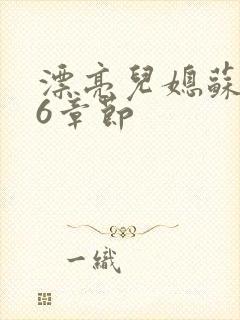 漂亮兒媳蘇
6章節
一織